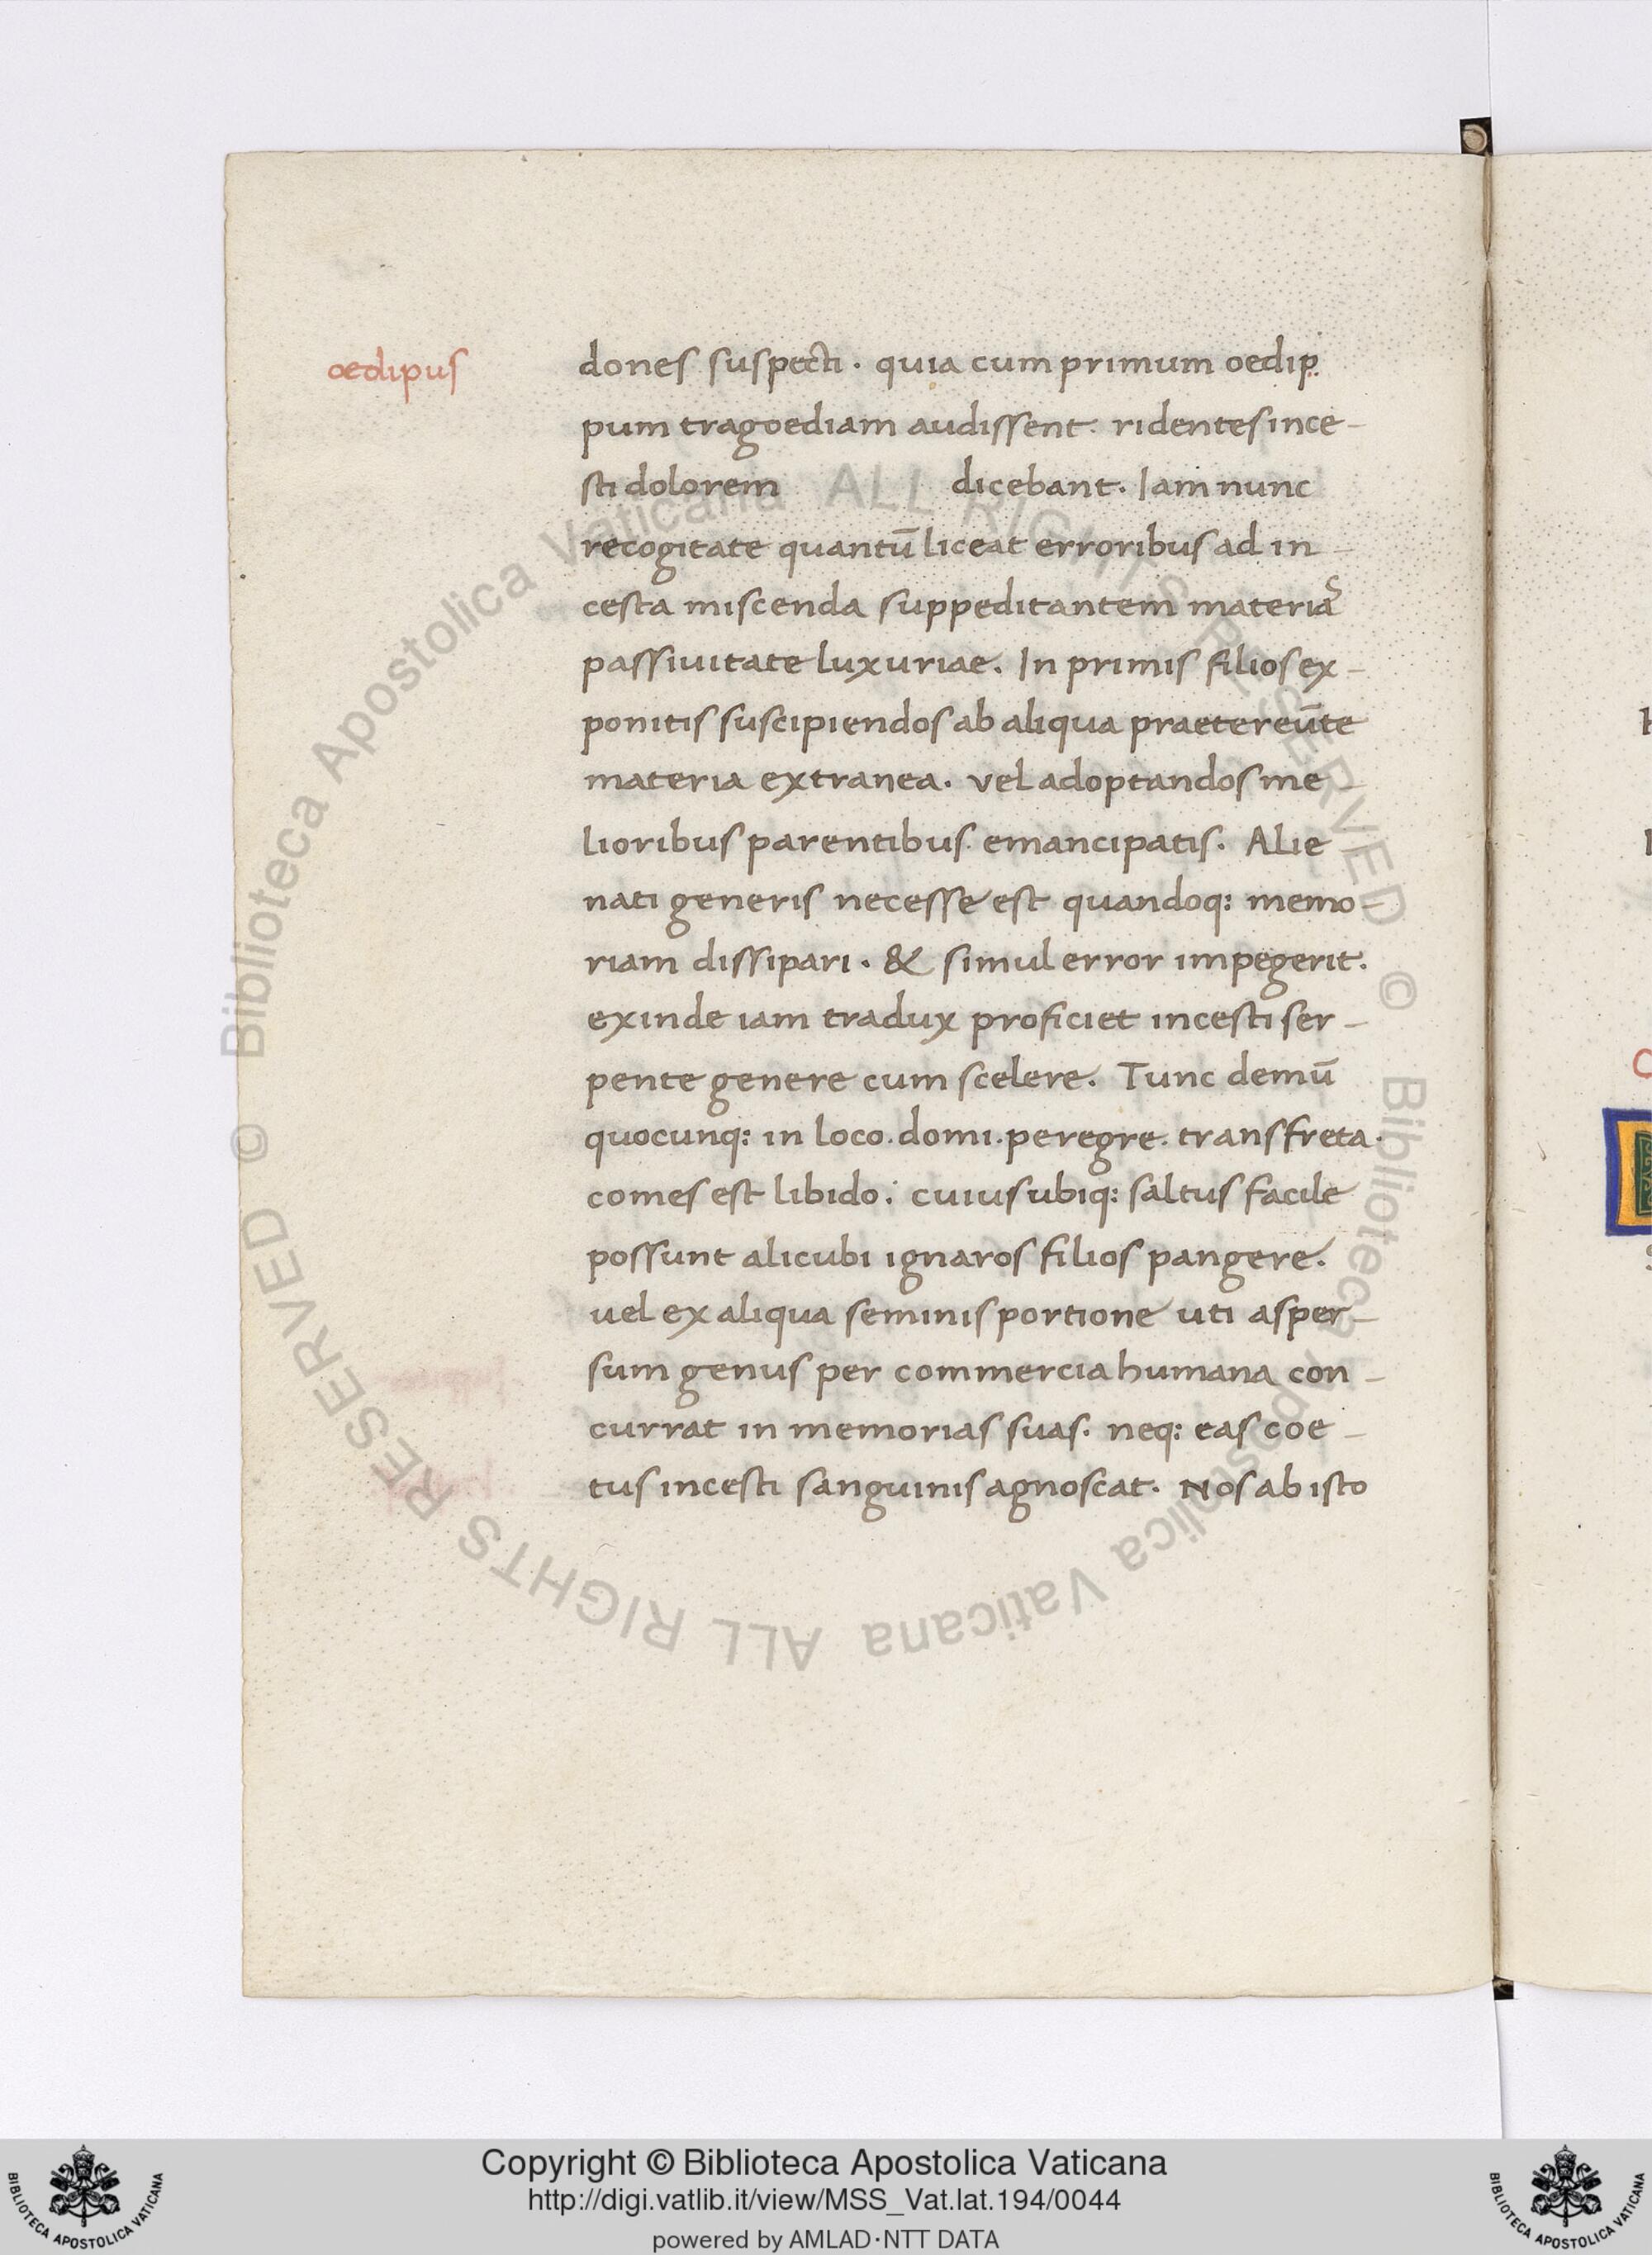 oedipus
dones suspecti . quia cum primum oedip
pum tragoediam audissent. ridentes ince-
sti dolorem dicebant. Iam nunc
recogitate quantū liceat erroribus ad in-
cesta miscenda suppeditantem materiā
passiuitate luxuriae. In primis filios ex-
ponitis suscipiendos ab aliqua praetereūte
materia extranea. vel adoptandos me-
lioribus parentibus emancipatis. Alie
nati generis necesse est quandoq: memo-
riam dissipari. & simul error impegerit.
exinde iam tradux proficiet incesti ser-
pente genere cum scelere. Tunc demū
quocunq: in loco. domi. peregre. transfreta.
comes est libido. cuius ubiq: saltus facile
possunt alicubi ignaros filios pangere.
uel ex aliqua seminis portione uti asper-
sum genus per commercia humana con-
currat in memorias suas. neq: eas coe-
tus incesti sanguinis agnoscat. Nos ab isto
© Biblioteca Apostolica Vaticana ALL RIGHTS RESERVED © Biblioteca Apostolica Vaticana ALL RIGHTS RESERVED
Copyright © Biblioteca Apostolica Vaticana
http://digi.vatlib.it/view/MSS_Vat.lat.194/0044
powered by AMLAD·NTT DATA
BIBLIOTECA APOSTOLICA VATICANA
BIBLIOTECA APOSTOLICA VATICANA